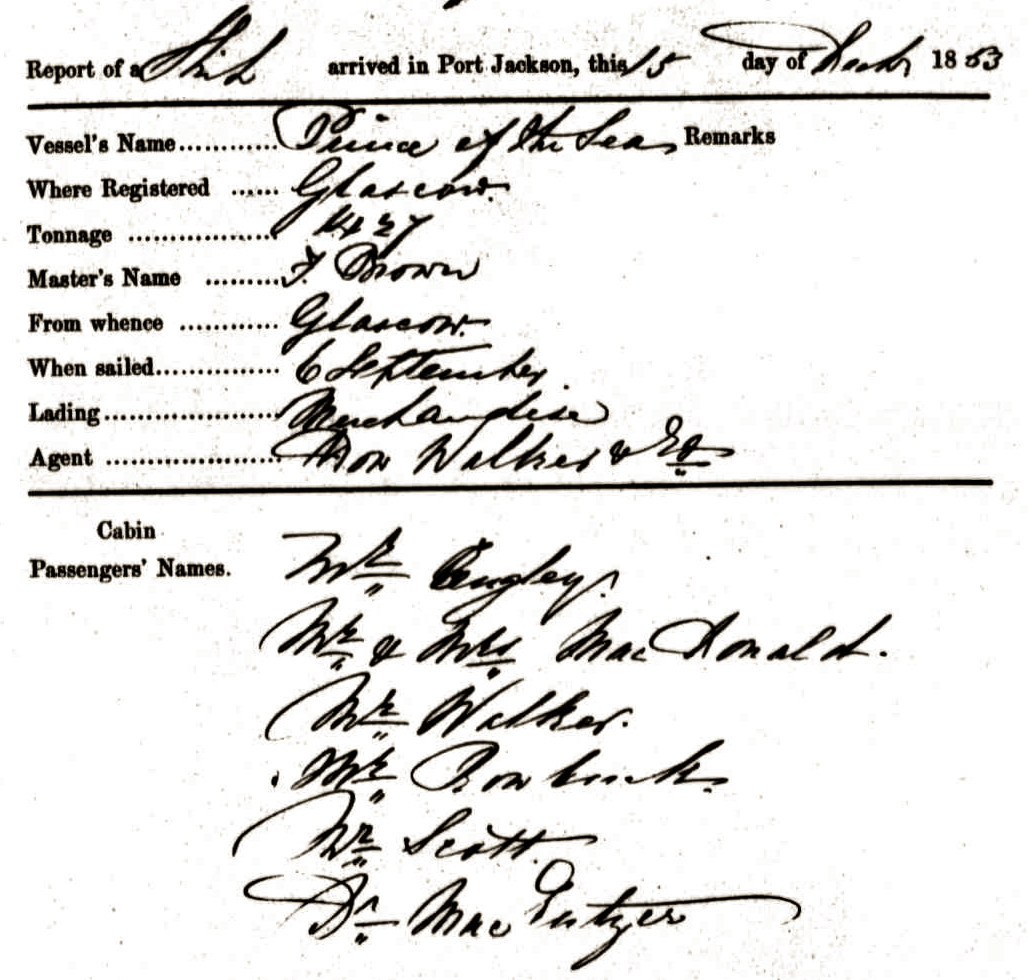 Report of a Ship arrived in Port Jackson, this 15 day of Decbr 1853
Vessel's Name............ Prince of the Seas Remarks
Where Registered ...... Glascow.
Tonnage ................. 1427
Master's Name ......... F. Brown
From whence ............ Glascow.
When sailed............... 6 September.
Lading..................... Merchandise
Agent ..................... Walker & Co
Cabin
Passengers' Names.
Mr
Mr & Mrs MacDonald.
Mr Walker.
Mr Rowbuck.
Mr Scott.
Dr Mac